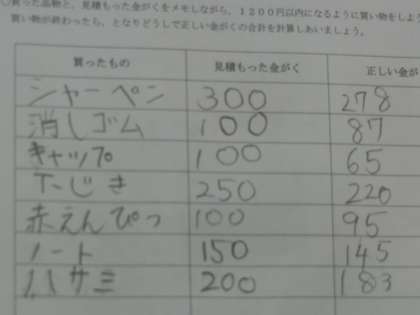 買った品物と、見積もった金がくをメモしながら、1200円以内になるように買い物をしよう
買い物が終わったら、となりどうしで正しい金がくの合計を計算しあいましょう。
買ったもの 見積もった金がく 正しい金が
シャーペン 300 278
消しゴム 100 87
キャップ 100 65
下じき 250 220
赤えんぴつ 100 95
ノート 150 145
ハサミ 200 183